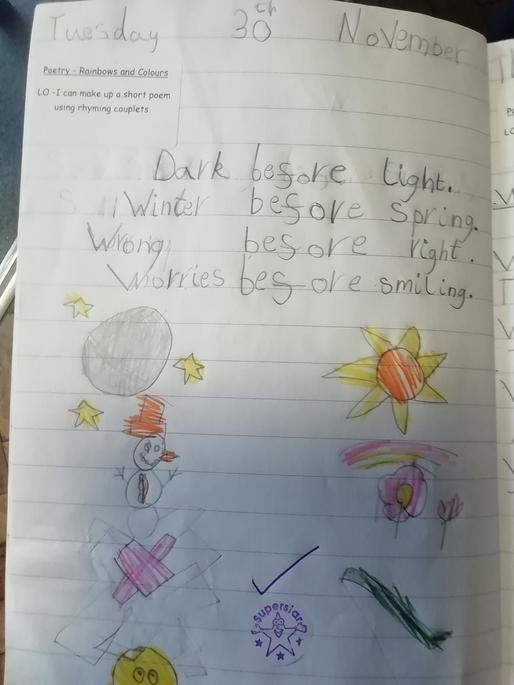 Tuesday 30th November
Poetry - Rainbows and Colours
LO -I can make up a short poem
using rhyming couplets.
Dark before light.
Winter before spring.
Wrong before right.
Worries before smiling.
Superstar